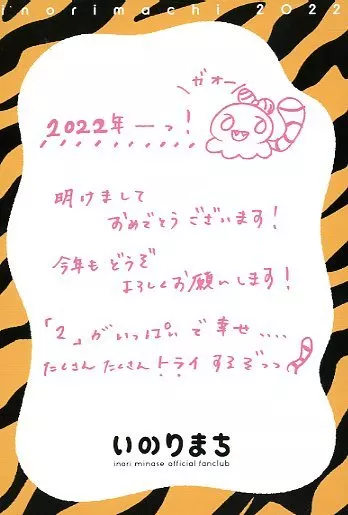 inorimachi 2022
ガオー
2022年ーっ!
明けまして
おめでとうございます!
今年もどうぞ
よろしくお願いします!
「2」がいっぱいで幸せ....
たくさんたくさんトライするぞっっ
いのりまち
inori minase official fanclub